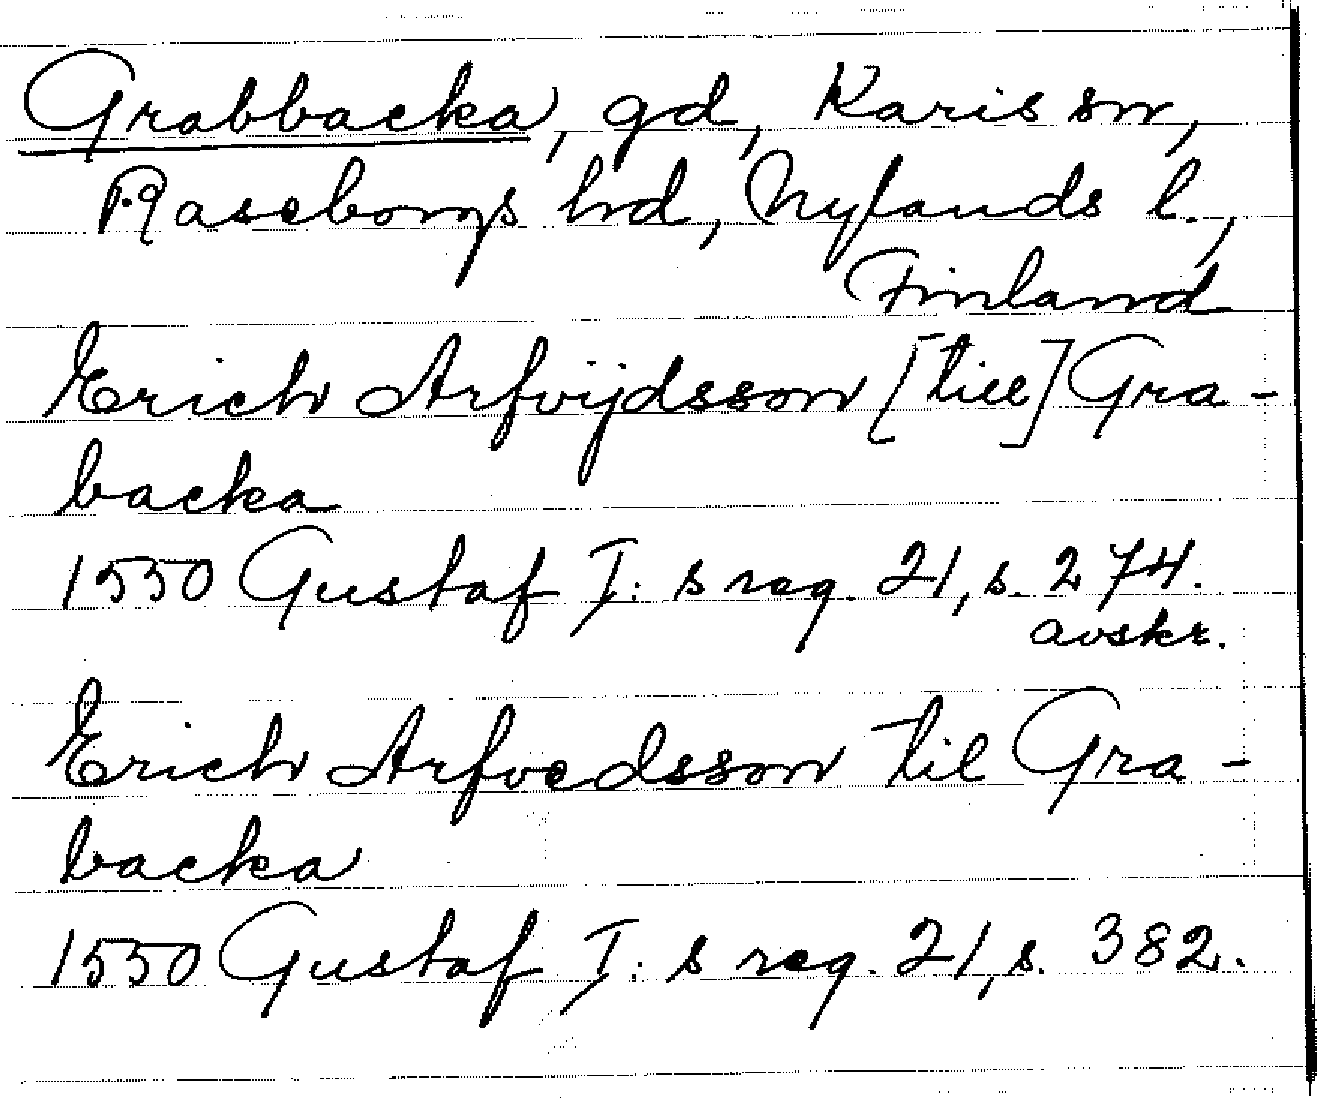 Grabbacka, gd, Karis sn,
Raseborgs hd, Nylands l.,
Finland
Erich Arfvijdsson [till] Gra-
backa
1550 Gustaf I:s reg. 21, s. 274.
avskr.
Erich Arfvedsson til Gra-
backa
1550 Gustaf I:s reg. 21, s. 382.